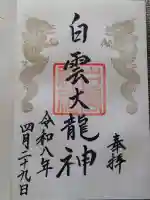 奉拝
白雲大龍神
令和八年
四月二十九日